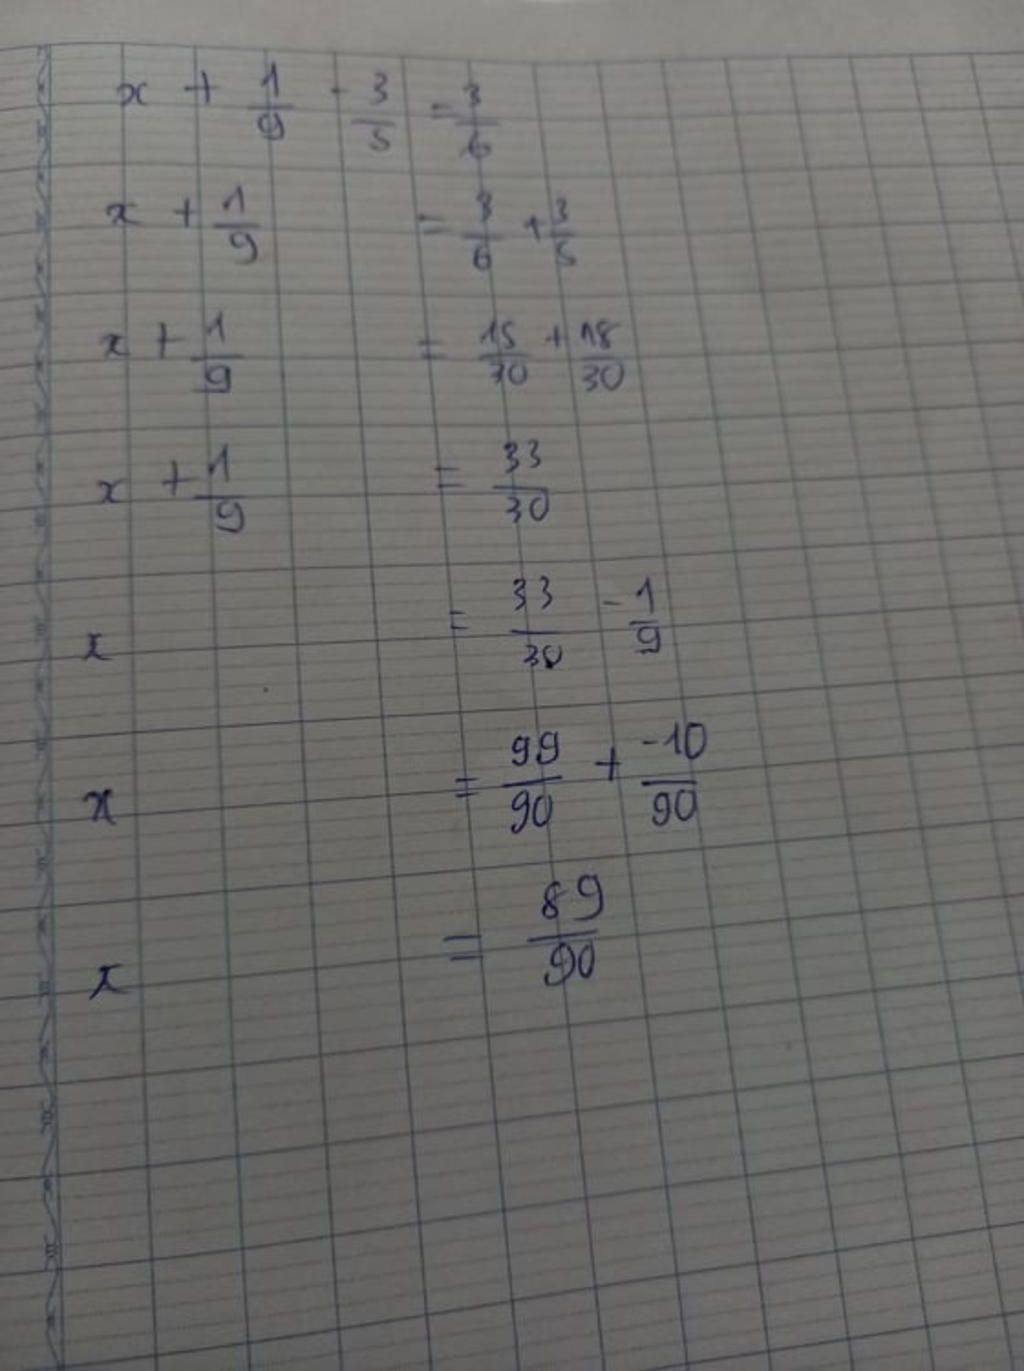 x + 1/9 - 3/5 = 3/6
x + 1/9 = 3/6 + 3/5
x + 1/9 = 15/30 + 18/30
x + 1/9 = 33/30
x = 33/30 - 1/9
x = 99/90 + -10/90
x = 89/90